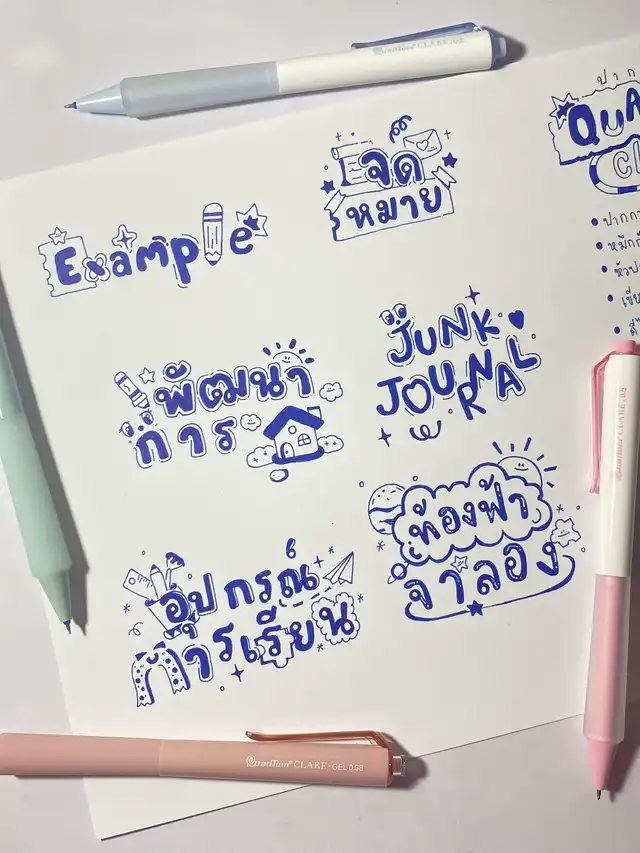 QuanTum CLARE • 0.5
ปาก
QUA
CL
• ปากกา
• หมึกก
• หัวป
• เขีย
• ดีไ
จด
หมาย
Example
JUNK
JOURNAL
พัฒนา
การ
ท้องฟ้า
จำลอง
อุปกรณ์
การเรียน
QuanTum CLARE • 0.5
QuanTum® CLARE • GEL 0.38